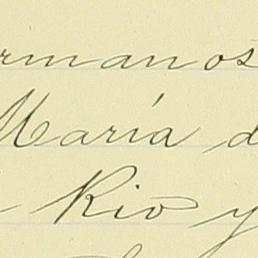 rmanos
María d
Rio y